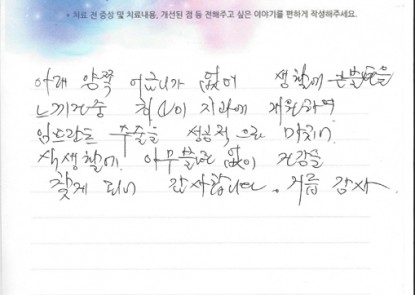 * 치료 전 증상 및 치료내용, 개선된 점 등 전해주고 싶은 이야기를 편하게 작성해주세요.
아래 양쪽 어금니가 없어 생활에 큰불편을
느끼던중 치과에 내원하여
임프란트 수술을 성공적으로 마치어
식생활에 아무불편 없이 건강을
찾게 되어 감사합니다. 거듭 감사